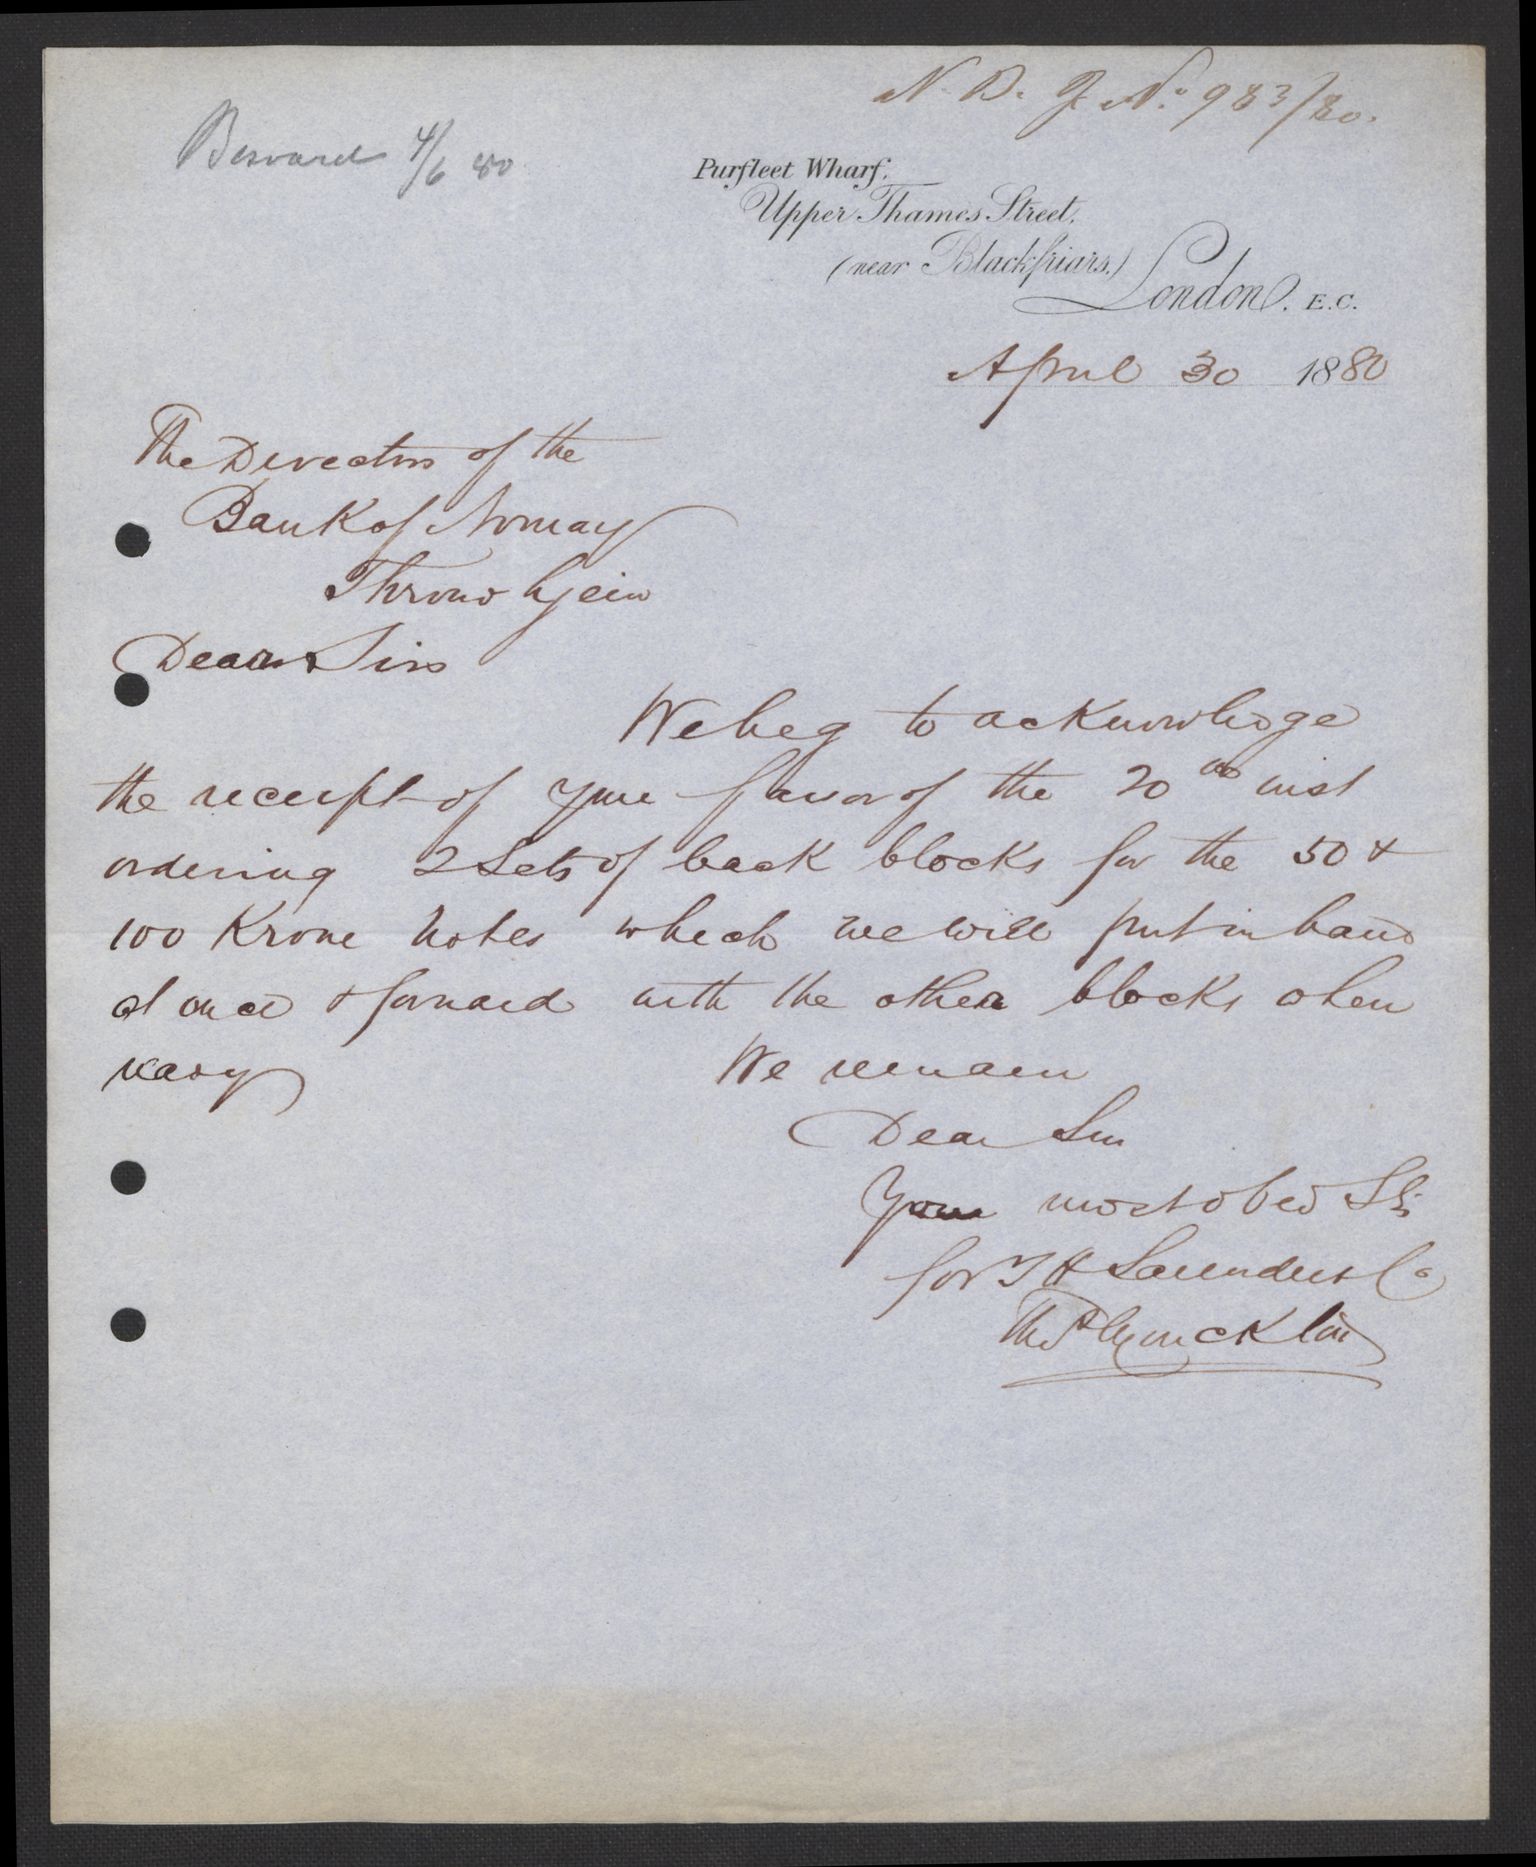 N. B. J. No. 983/80.
Besvaret 4/6 80
Purfleet Wharf,
Upper Thames Street,
(near Blackfriars.)
London. E.C.
April 30 1880
The Directors of the
Bank of Norway
Throndhjeim
Dear Sirs
We beg to acknowledge
the receipt of your favor of the 20th inst
ordering 2 Sets of back blocks for the 50 &
100 Krone Notes which we will put in hand
at once & forward with the other blocks when
ready
We remain
Dear Sirs
Your most obed Sts
for T H Saunders & Co